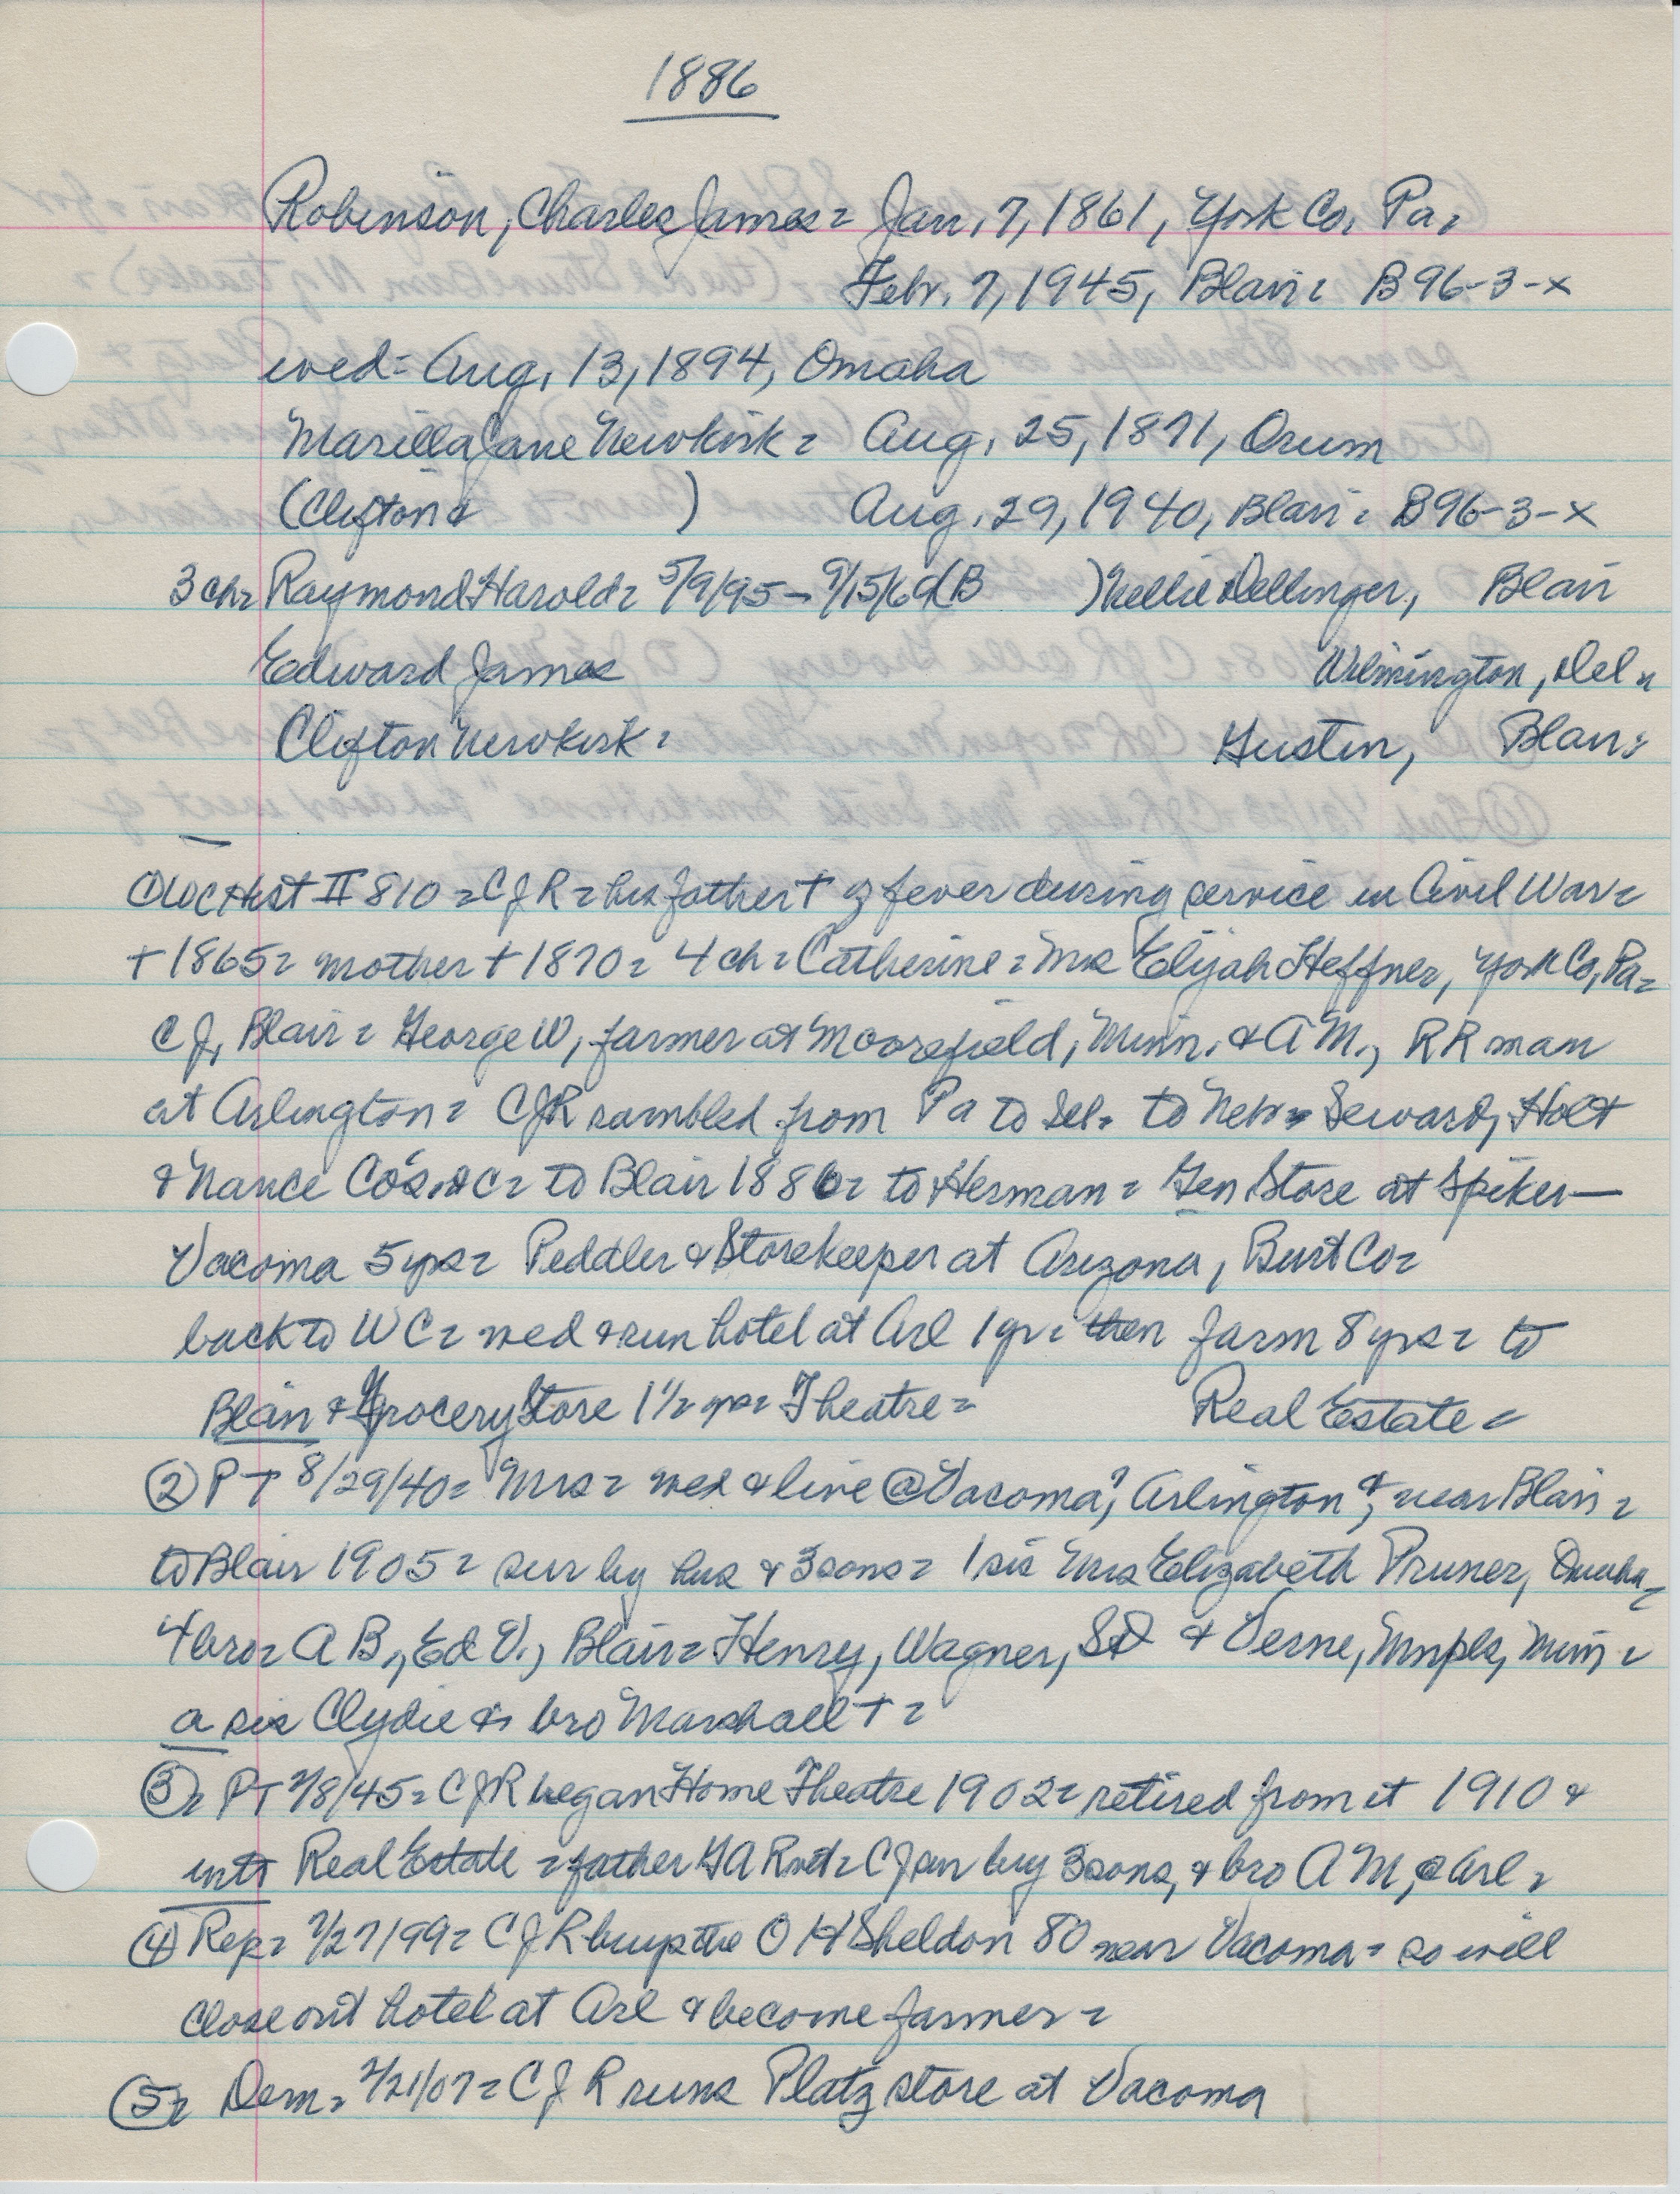 1886
Robinson, Charles James = Jan. 7, 1861, York Co, Pa.
Febr. 7, 1945, Blair = B96-3-x
wed = Aug. 13, 1894, Omaha
Marilla Jane Newkirk = Aug. 25, 1871, Orum
(Clifton & ) Aug. 29, 1940, Blair = B96-3-x
3 ch = Raymond Harold = 5/9/95 - 9/15/69 (B ) Nellie Dellinger, Blair
Edward James Wilmington, Del =
Clifton Newkirk = Hustin, Blair =
① WC Hist II 810 = CJR = his father + of fever during service in Civil War =
+ 1865 = mother + 1870 = 4 ch = Catherine = Mrs Elijah Heffner, York Co, Pa =
CJ, Blair = George W, farmer at Moorefield, Minn. & A M., RR man
at Arlington = CJR rambled from Pa to Del. to Nebr = Seward, Holt
& Nance Co's. &c = to Blair 1886 = to Herman = Gen Store at Spiker -
Vacoma 5 yrs = Peddler & Storekeeper at Arizona, Burt Co =
back to WC = wed & run hotel at Arl 1 yr = then farm 8 yrs = to
Blair & Grocery Store 1 1/2 yrs = Theatre = Real Estate =
② PT 8/29/40 = Mrs = wed & live @ Vacoma?, Arlington &, near Blair =
to Blair 1905 = sur by hus & 3 sons = 1 sis Mrs Elizabeth Pruner, Omaha =
4 bro = A B., Ed V., Blair = Henry, Wagner, SD & Verne, Mnpls, Minn =
a sis Clydie & bro Marshall + =
③ = PT 2/8/45 = CJR began Home Theatre 1902 = retired from it 1910 &
into Real Estate = father GAR vet = CJ sur by 3 sons, & bro A M, @ Arl =
④ Rep = 7/27/99 = CJR buys the O H Sheldon 80 near Vacoma = so will
close out hotel at Arl & become farmer =
⑤ = Dem = 2/21/07 = CJR runs Platz store at Vacoma